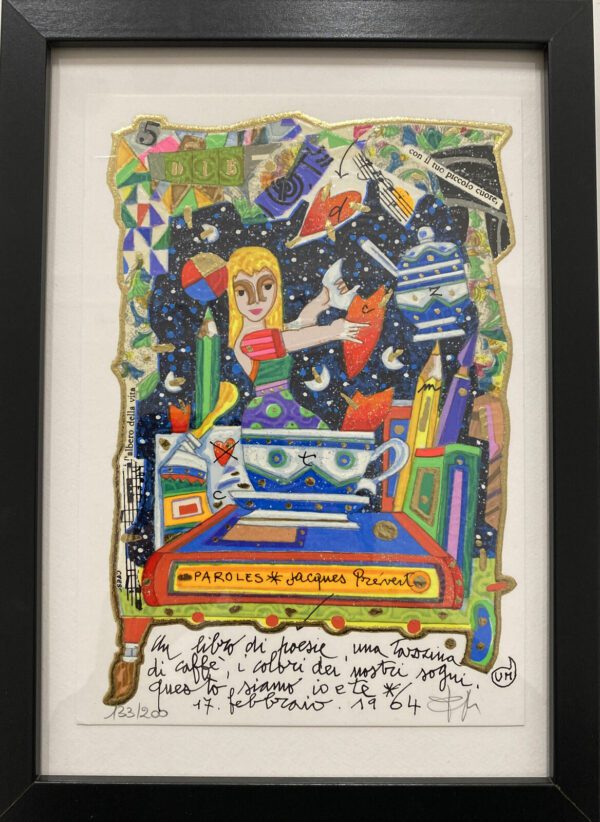 5
con il tuo piccolo cuore,
d
z
c
m
l'albero della vita
t
c
PAROLES * Jacques Prévert
Un libro di poesie, una tazzina
di caffè, i colori dei nostri sogni,
questo siamo io e te */
17. febbraio. 1964
UM
133/200